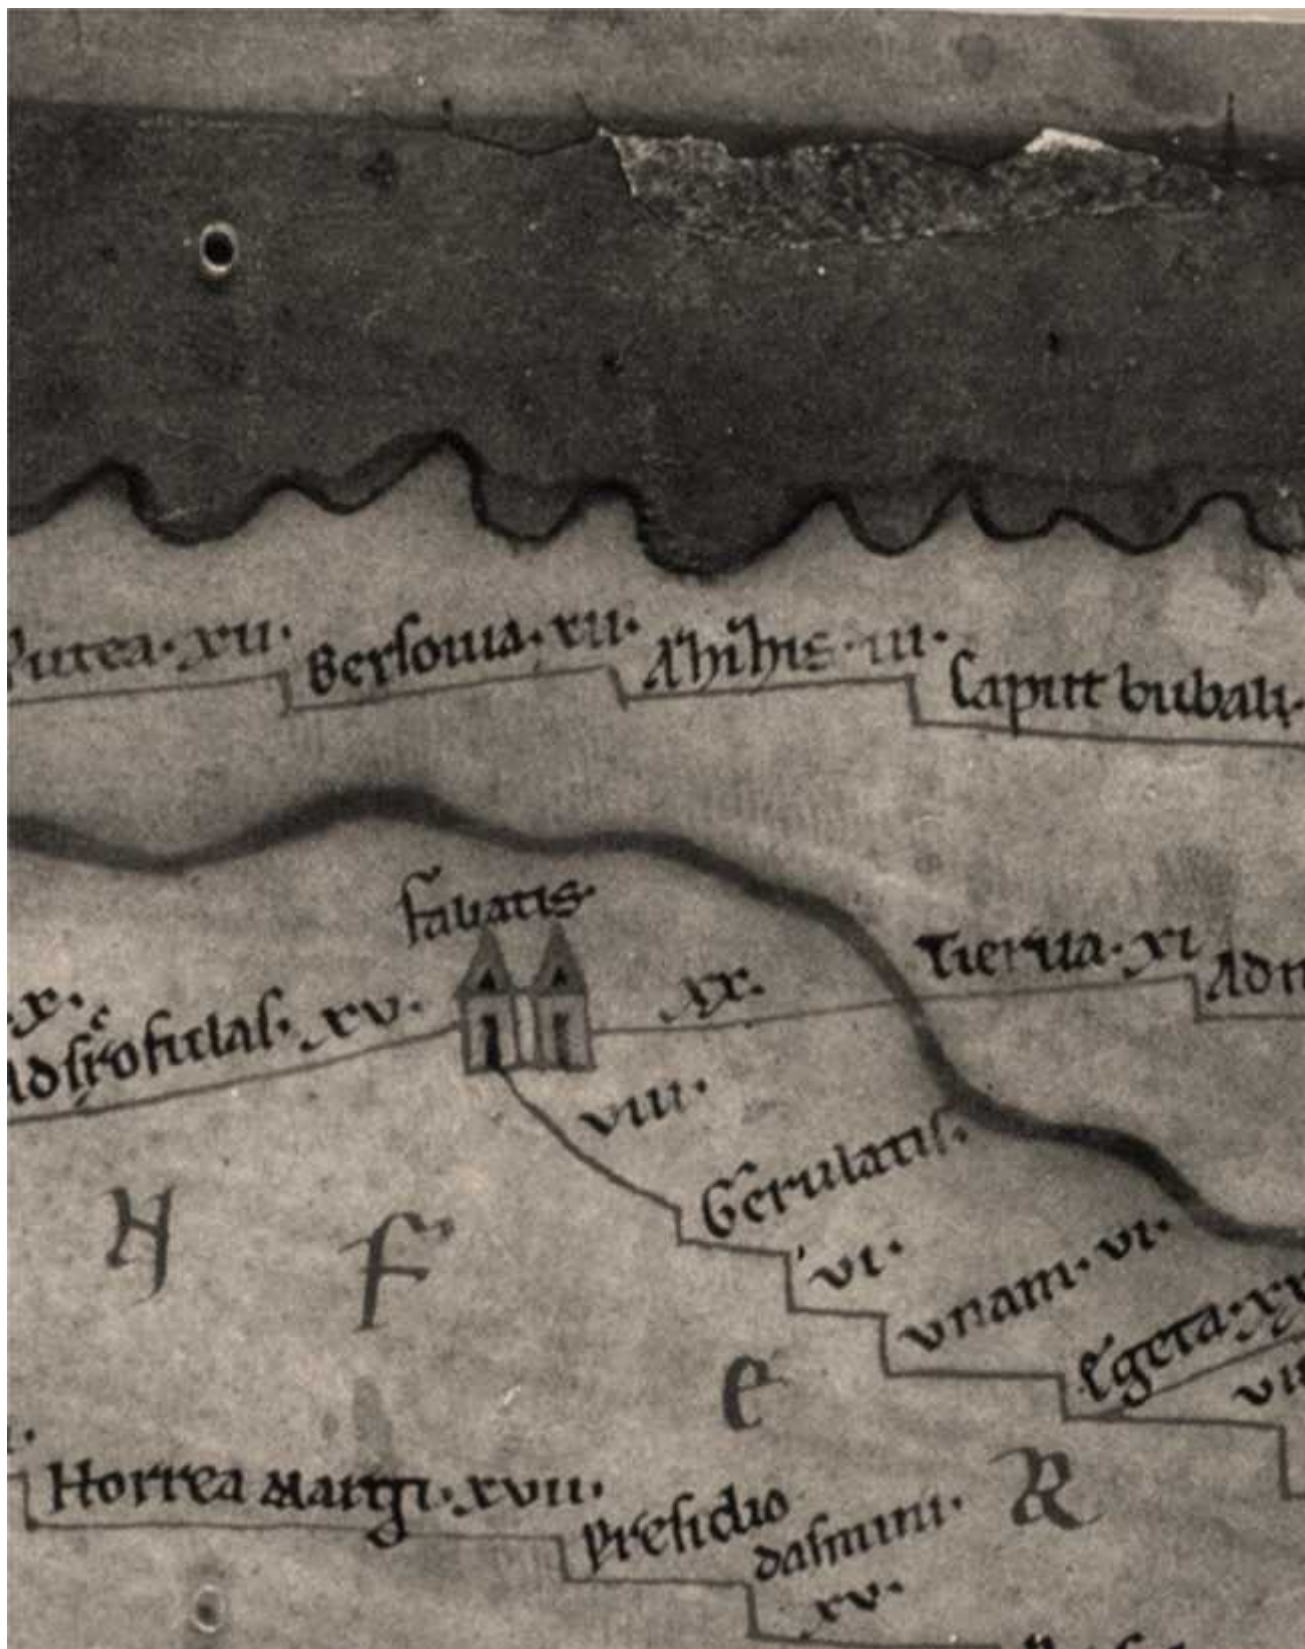 Putea · xii ·
Bersouia · xii ·
Ahihis · iii ·
Caput bubali ·
faliatis ·
x ·
Adscrofulas · xv ·
xx ·
Tierua · xi
Adn
viii ·
Gerulatis ·
vi ·
unam · vi ·
Egeta · xx
vii
H F
e
R
Horrea Margi · xvii ·
presidio
dasmini ·
xv ·